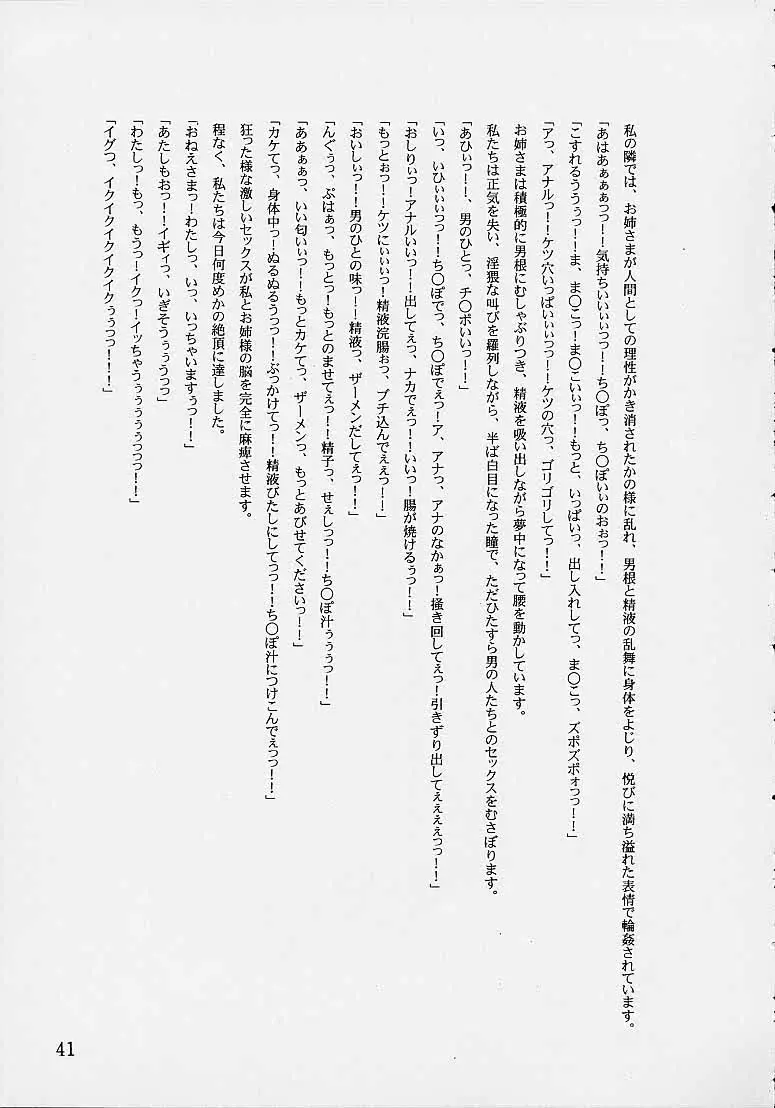 私の隣では、お姉さまが人間としての理性がかき消されたかの様に乱れ、男根と精液の乱舞に身体をよじり、悦びに満ち溢れた表情で輪姦されています。
「あはあぁぁぁっっ！！気持ちいいぃぃっっ！！ち〇ぽっ、ち〇ぽいぃのおぉっ！！」
「こすれるううぅっ！！ま、ま〇こっ！ま〇こいぃっ！！もっと、いっぱいっ、出し入れしてっ、ま〇こっ、ズポズポォっっ！！」
「アっ、アナルっ！！ケツ穴いっぱいぃぃっっ！！ケツの穴っ、ゴリゴリしてっ！！」
お姉さまは積極的に男根にむしゃぶりつき、精液を吸い出しながら夢中になって腰を動かしています。
私たちは正気を失い、淫猥な叫びを羅列しながら、半ば白目になった瞳で、ただひたすら男の人たちとのセックスをむさぼります。
「あひぃっ！！、男のひとっ、チ〇ポいいっ！！」
「いっ、いひぃぃぃっっ！！ち〇ぽでっ、ち〇ぽでぇっ！ア、アナっ、アナのなかぁっ！掻き回してぇっ！引きずり出してぇえぇぇっっ！！」
「おしりぃっ！アナルいいっ！！出してぇっ、ナカでぇっ！！いいっ！腸が焼けるぅっ！！」
「もっとぉっ！！ケツにいぃぃっ！精液浣腸ぉっ、ブチ込んでぇぇっ！！」
「おいしぃっ！！男のひとの味っ！！精液っ、ザーメンだしてぇっ！！」
「んぐぅっ、ぷはぁっ、もっとっ！もっとのませてえぇっ！！精子っ、せぇしっっ！！ち〇ぽ汁ぅぅぅっ！！」
「ああぁぁっ、いい匂いぃっ！！もっとカケてっ、ザーメンっ、もっとあびせてくださいっ！！」
「カケてっ、身体中っ！ぬるぬるうっっ！！ぶっかけてっ！！精液びたしにしてっっ！！ち〇ぽ汁につけこんでえっっ！！」
狂った様な激しいセックスが私とお姉様の脳を完全に麻痺させます。
程なく、私たちは今日何度めかの絶頂に達しました。
「おねえさまっ！わたしっ、いっ、いっちゃいますぅっ！！」
「あたしもおっ！！イギィっ、いぎそうぅぅうっっ」
「わたしっ！もっ、もうっ！イクっ！イッちゃうぅぅぅぅぅっっっ！！」
「イグつ、イクイクイクイクイクぅぅっっ！！！」
41